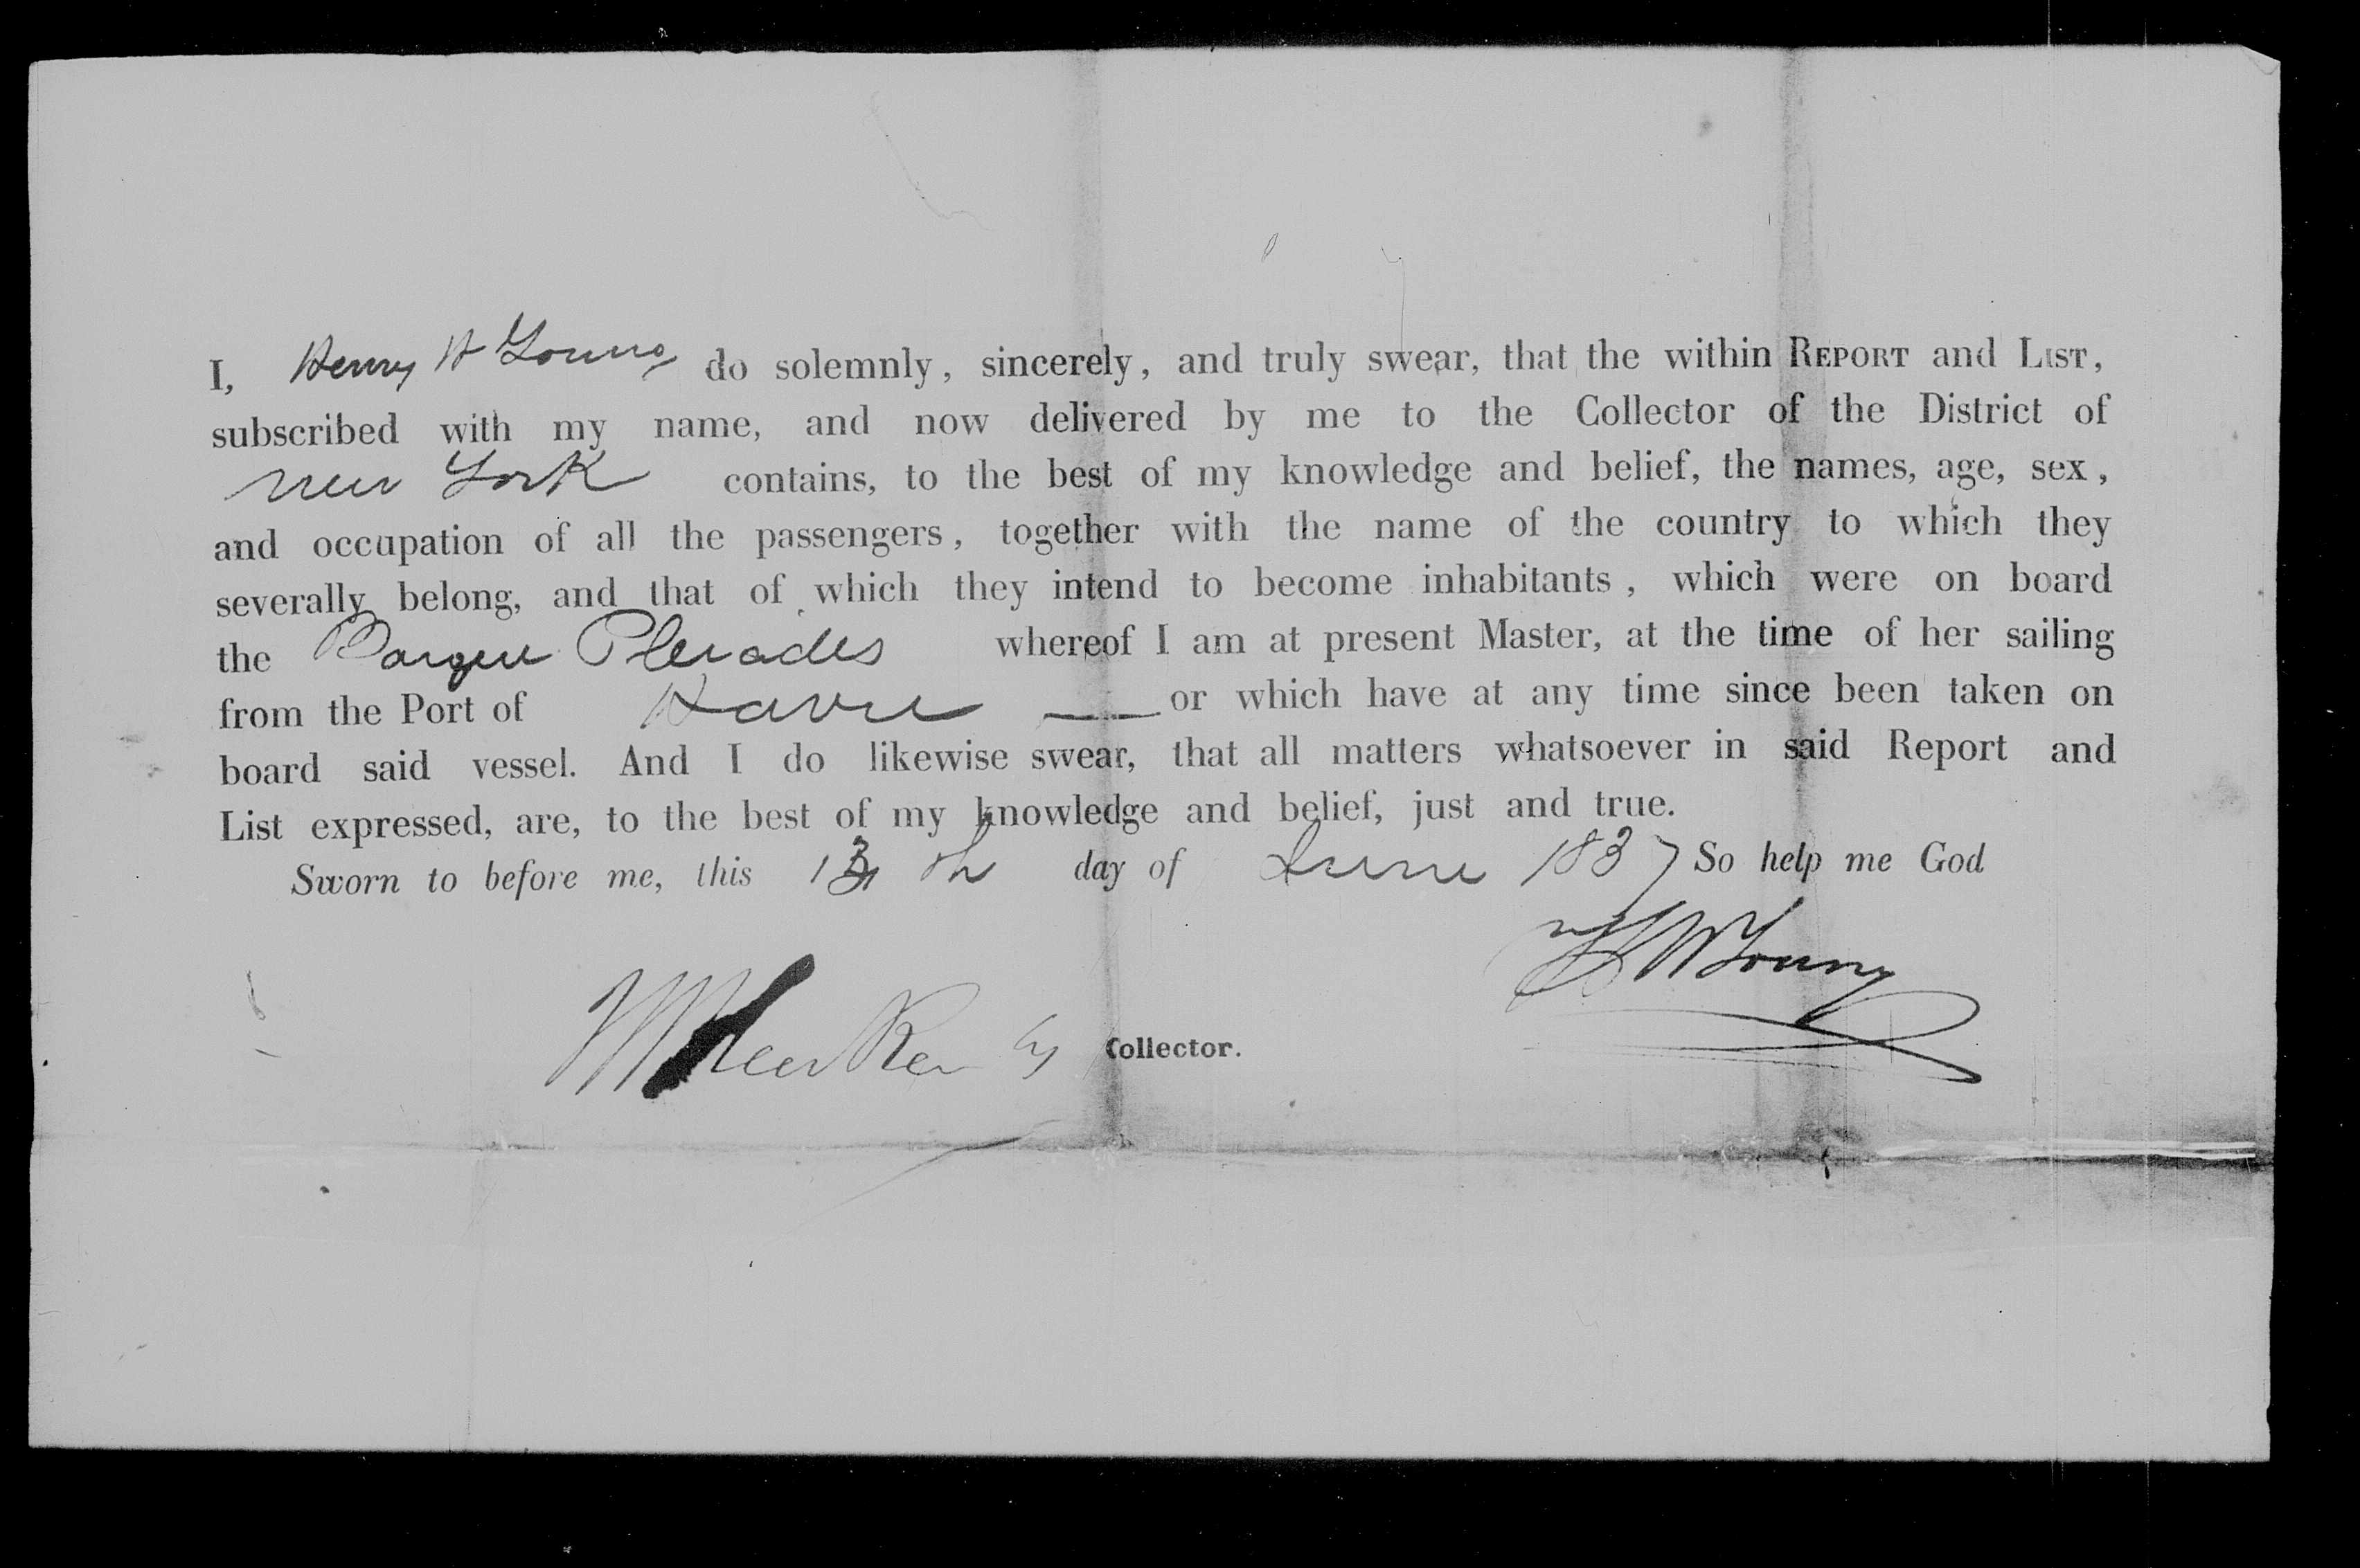 I, Henry W Young do solemnly, sincerely, and truly swear, that the within REPORT and LIST,
subscribed with my name, and now delivered by me to the Collector of the District of
New York contains, to the best of my knowledge and belief, the names, age, sex,
and occupation of all the passengers, together with the name of the country to which they
severally belong, and that of which they intend to become inhabitants, which were on board
the Barque Pleiades whereof I am at present Master, at the time of her sailing
from the Port of Havre — or which have at any time since been taken on
board said vessel. And I do likewise swear, that all matters whatsoever in said Report and
List expressed, are, to the best of my knowledge and belief, just and true.
Sworn to before me, this 13th day of June 1837 So help me God
H W Young
Collector.